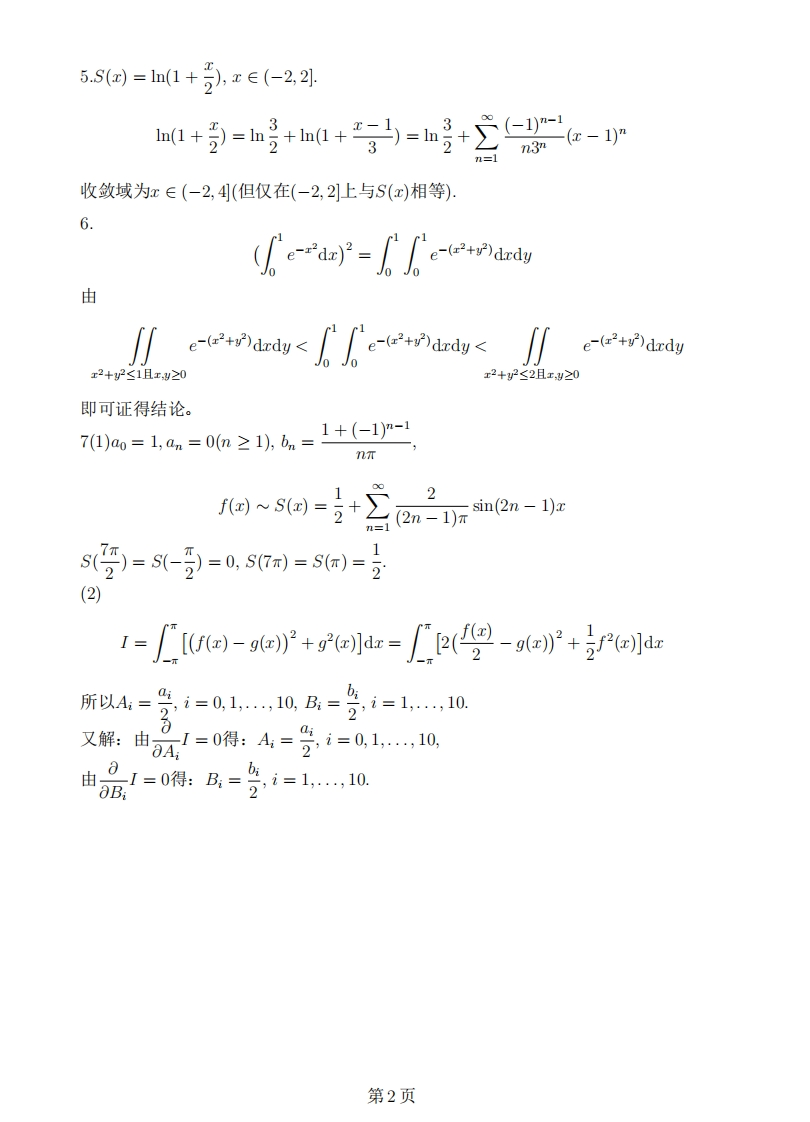 5.S(x) = ln(1 + x/2), x ∈ (−2, 2].
ln(1 + x/2) = ln 3/2 + ln(1 + (x − 1)/3) = ln 3/2 + ∑_{n=1}^{∞} (−1)^{n−1}/(n3^n) (x − 1)^n
收敛域为x ∈ (−2, 4](但仅在(−2, 2]上与S(x)相等).
6.
(∫_0^1 e^{−x²}dx)² = ∫_0^1 ∫_0^1 e^{−(x²+y²)}dxdy
由
∬_{x²+y²≤1且x,y≥0} e^{−(x²+y²)}dxdy < ∫_0^1 ∫_0^1 e^{−(x²+y²)}dxdy < ∬_{x²+y²≤2且x,y≥0} e^{−(x²+y²)}dxdy
即可证得结论。
7(1)a_0 = 1, a_n = 0(n ≥ 1), b_n = (1 + (−1)^{n−1})/(nπ),
f(x) ∼ S(x) = 1/2 + ∑_{n=1}^{∞} 2/((2n − 1)π) sin(2n − 1)x
S(7π/2) = S(−π/2) = 0, S(7π) = S(π) = 1/2.
(2)
I = ∫_{−π}^{π} [(f(x) − g(x))² + g²(x)]dx = ∫_{−π}^{π} [2(f(x)/2 − g(x))² + 1/2 f²(x)]dx
所以A_i = a_i/2, i = 0, 1, . . . , 10, B_i = b_i/2, i = 1, . . . , 10.
又解：由∂/∂A_i I = 0得：A_i = a_i/2, i = 0, 1, . . . , 10,
由∂/∂B_i I = 0得：B_i = b_i/2, i = 1, . . . , 10.
第 2 页